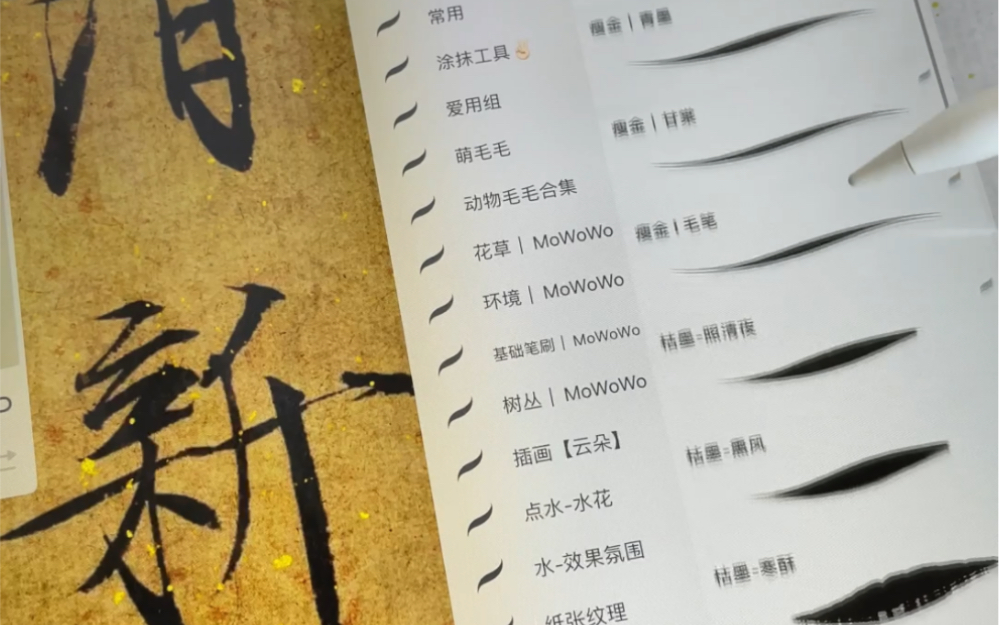 清
新
常用
涂抹工具✌🏻
爱用组
萌毛毛
动物毛毛合集
花草 | MoWoWo
环境 | MoWoWo
基础笔刷 | MoWoWo
树丛 | MoWoWo
插画【云朵】
点水-水花
水-效果氛围
纸张纹理
瘦金 | 青墨
瘦金 | 甘棠
瘦金 | 毛笔
枯墨-照清夜
枯墨-熏风
枯墨-寒酥